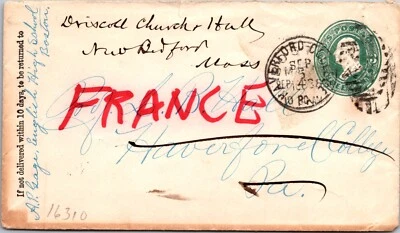 Driscoll Church & Hall
New Bedford
Mass
HAVERFORD
SEP
FRANCE
Haverford College
Pa.
If not delivered within 10 days, to be returned to
A.P. Gage, English High School
Boston.
16310